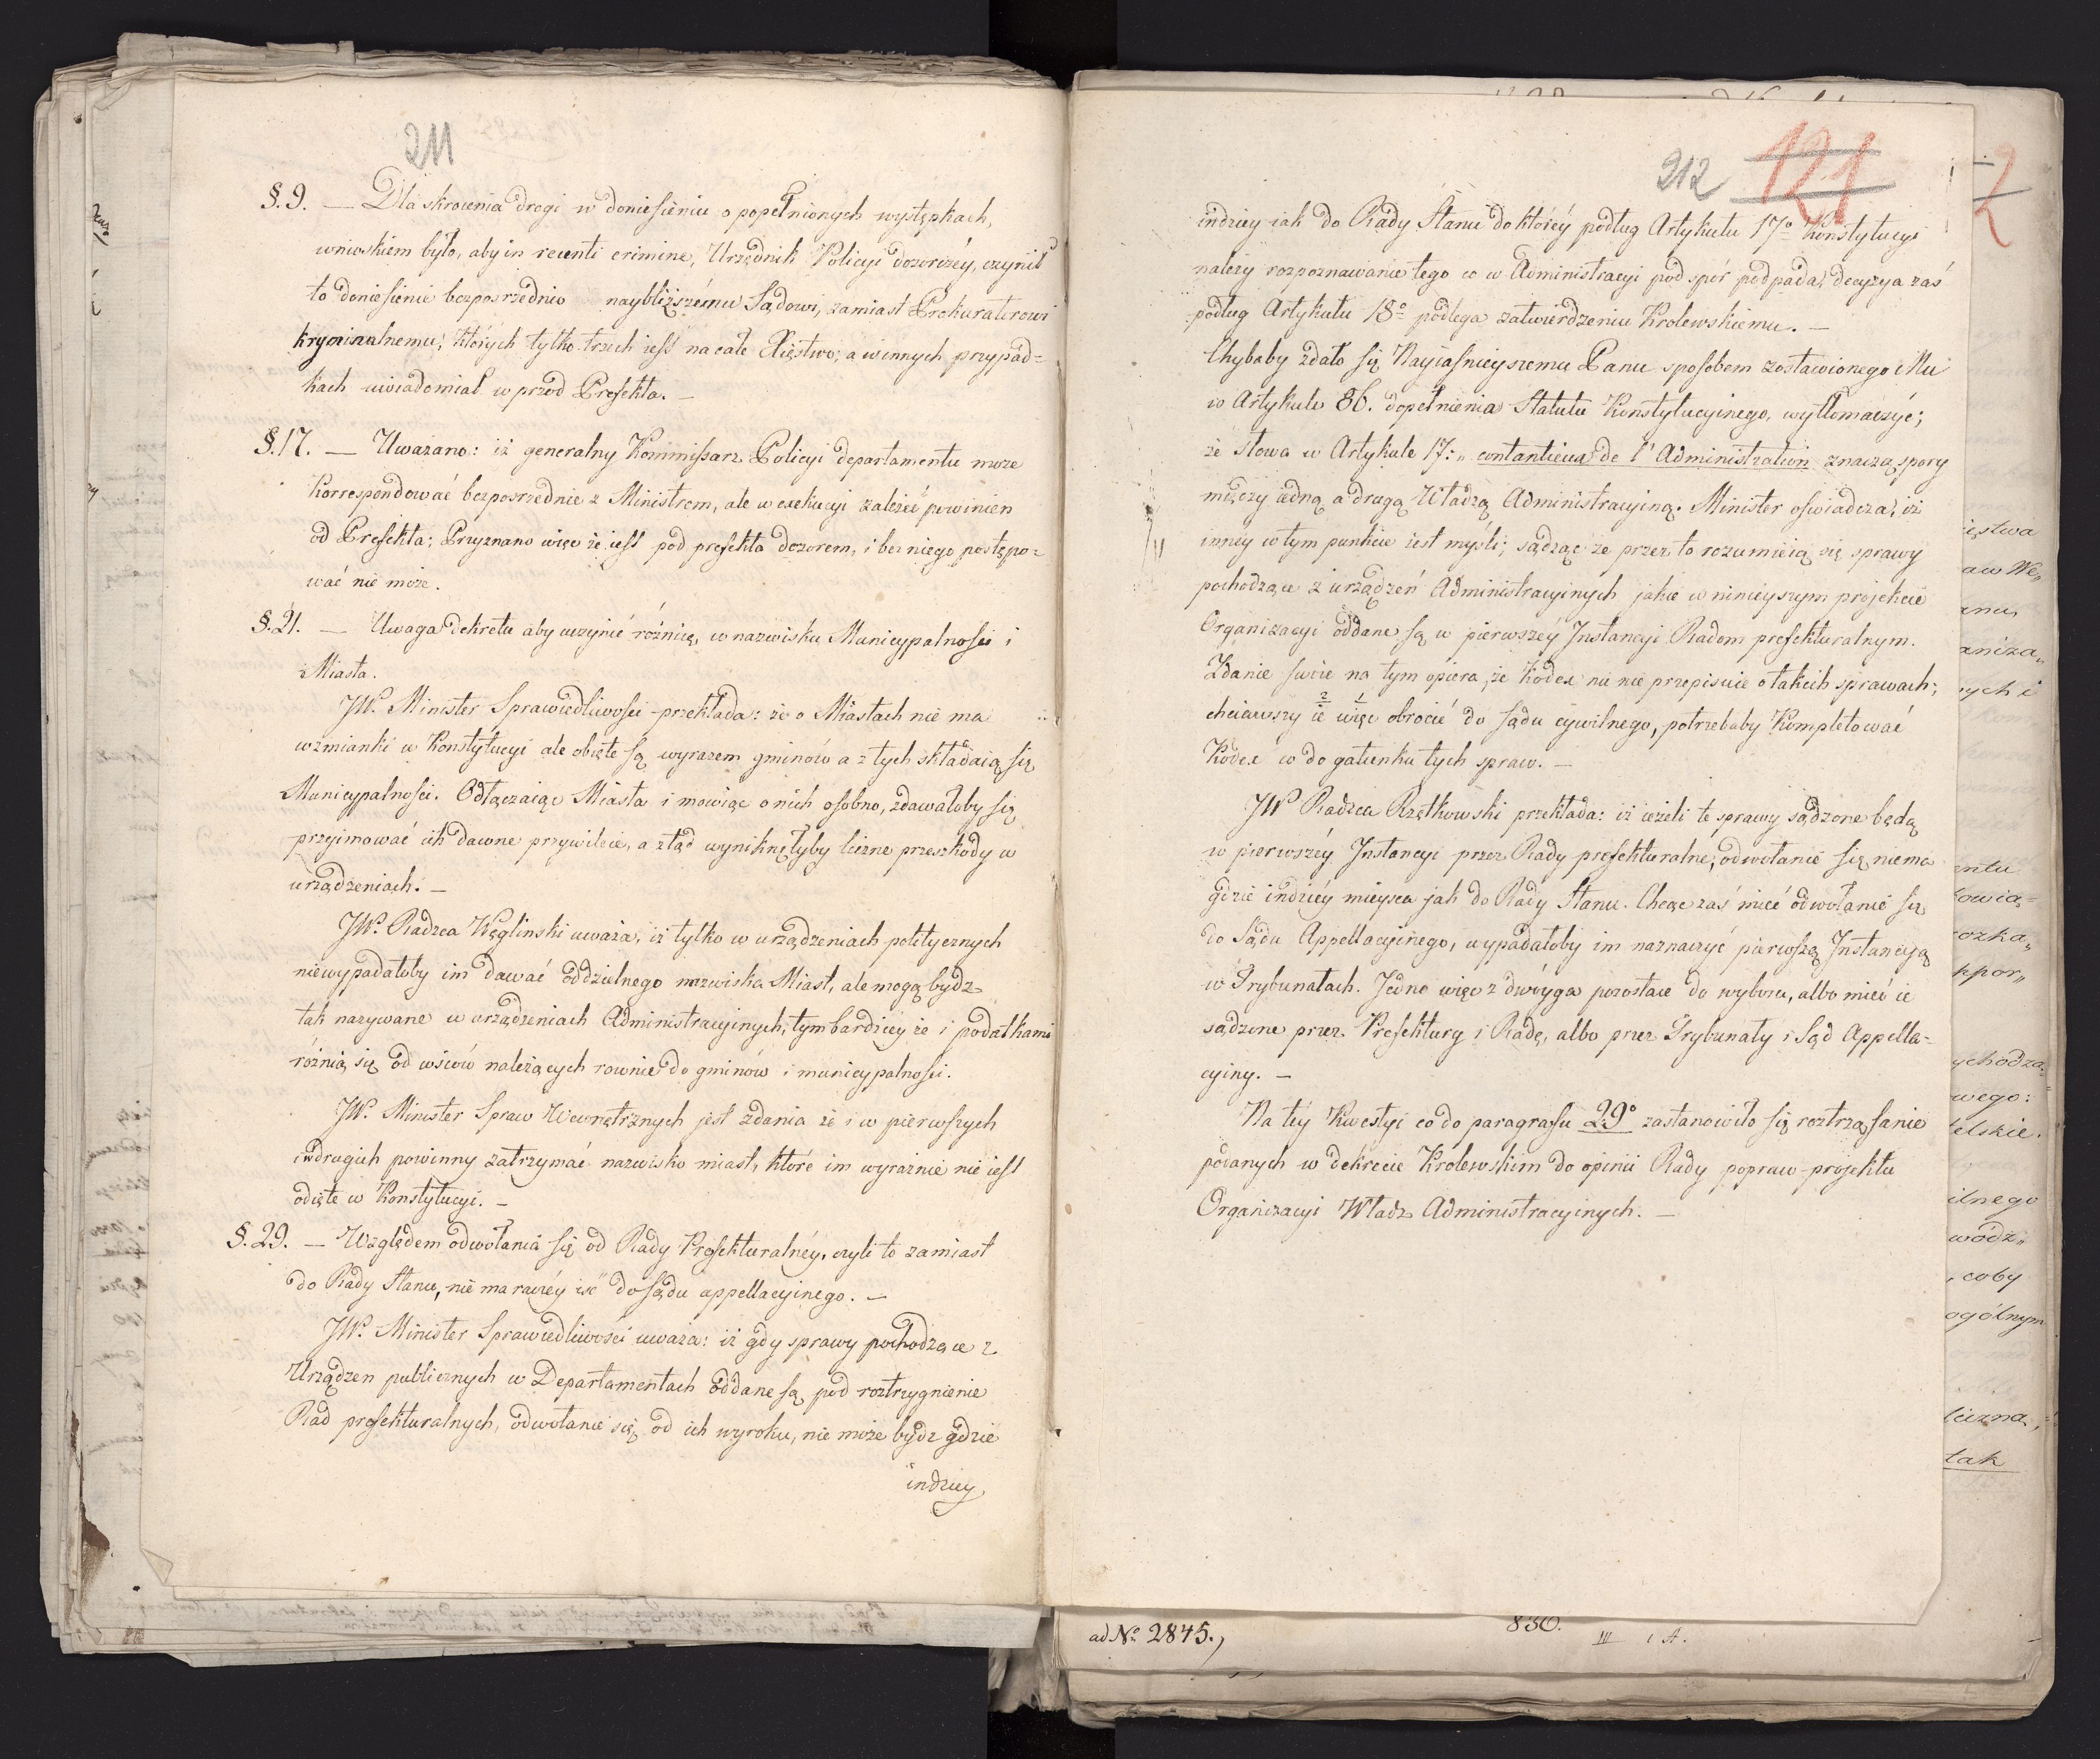 211
§. 9. — Dla skrocenia drogi w doniesieniu o popełnionych występkach,
wnioskiem było, aby in recenti crimine, Urzędnik Policyi dozorczéy, czynił
to doniesienie bezposrzednio naybliższému Sądowi, zamiast Prokuratorowi
kryminalnemu, których tylko trzech iest na całe Xięstwo, a w innych przypad=
kach uwiadomiał w przod Prefekta. —
§. 17. — Uważano: iż generalny Kommissarz Policyi departamentu moze
Korrespondować bezposrzednie z Ministrem, ale w exekucyi zależeć powinien
od Prefekta; Przyznano więc że iest pod prefekta dozorem, i bez niego postępo=
wać nie może.
§. 21. — Uwaga dekretu aby uczynić różnicę, w nazwisku Municypalnosci i
Miasta.
JW. Minister Sprawiedliwosci przekłada: że o Miastach nie ma
wzmianki w Konstytucyi ale obięte są wyrazem gminów a z tych składaią się
Municypalnosci. Odłączaiąc Miasta i mowiąc o nich osobno, zdawałoby się
przyimować ich dawne przywileie, a ztąd wyniknęłyby liczne przeszkody w
urządzeniach. —
JW. Radzca Węglinski uważa, iż tylko w urządzeniach politycznych
niewypadałoby im dawać oddzielnego nazwiska Miast, ale mogą bydz
tak nazywane w urządzeniach Administracyinych, tym bardziey że i podatkami
różnią się od wsiów należących rownie do gminów i municypalnosci.
JW. Minister Spraw Wewnętrznych jest zdania że i w pierwszych
i w drugich powinny zatrzymać nazwisko miast, które im wyraźnie nie iest
odięte w Konstytucyi. —
§. 29. — Względem odwołania się od Rady Prefekturalnéy, czyli to zamiast
do Rady Stanu, nie ma raczéy iść do sądu appellacyinego. —
JW. Minister Sprawiedliwości uważa: iż gdy sprawy pochodzące z
Urządzen publicznych w Departamentach oddane są pod roztrzygnienie
Rad prefekturalnych, odwołanie się od ich wyroku, nie może bydz gdzie
indziey
212 121
indziey iak do Rady Stanu do któréy podług Artykułu 17º Konstytucyi
należy rozpoznawanie tego co w Administracyi pod spór podpada, decyzya zaś
podług Artykułu 18º podlega zatwierdzeniu Krolewskiemu. —
Chybaby zdało się Nayiasnieyszemu Panu sposobem zostawionego Mu
w Artykule 86. dopełnienia Statutu Konstytucyinego, wytłomaczyć;
że słowa w Artykule 17: „ contantieux de l'Administration znaczą spory
między iedną a drugą Władzą Administracyiną. Minister oswiadcza, iż
inney w tym punkcie iest mysli; sądząc ze przez to rozumieią się sprawy
pochodzące z urządzeń Administracyinych jakie w ninieyszym projekcie
Organizacyi oddane są w pierwszéy Instancyi Radom prefekturalnym.
Zdanie swoie na tym opiera, że Kodex nic nie przepisuie o takich sprawach;
2 1
chciawszy ie więc obrocić do sądu cywilnego, potrzebaby Kompletować
Kodex w do gatunku tych spraw. —
JW Radzca Rzętkowski przekłada: iż ieżeli te sprawy sądzone będą
w pierwszéy Instancyi przez Rady prefekturalne, odwołanie się niema
gdzie indziéy mieysca jak do Rady Stanu. Chcąc zaś mieć odwołanie się
do Sądu Appellacyinego, wypadałoby im naznaczyć pierwszą Instancyą
w Trybunałach. Jedno więc z dwóyga pozostaie do wyboru, albo mieć ie
sądzone przez Prefektury i Radę, albo przez Trybunały i Sąd Appella=
cyiny. —
Na téy Kwestyi co do paragrafu 29º zastanowiło się roztrząsanie
podanych w dekrecie Krolewskim do opinii Rady popraw projektu
Organizacyi Władz Administracyinych. —
ad Nº 2845.,
830.